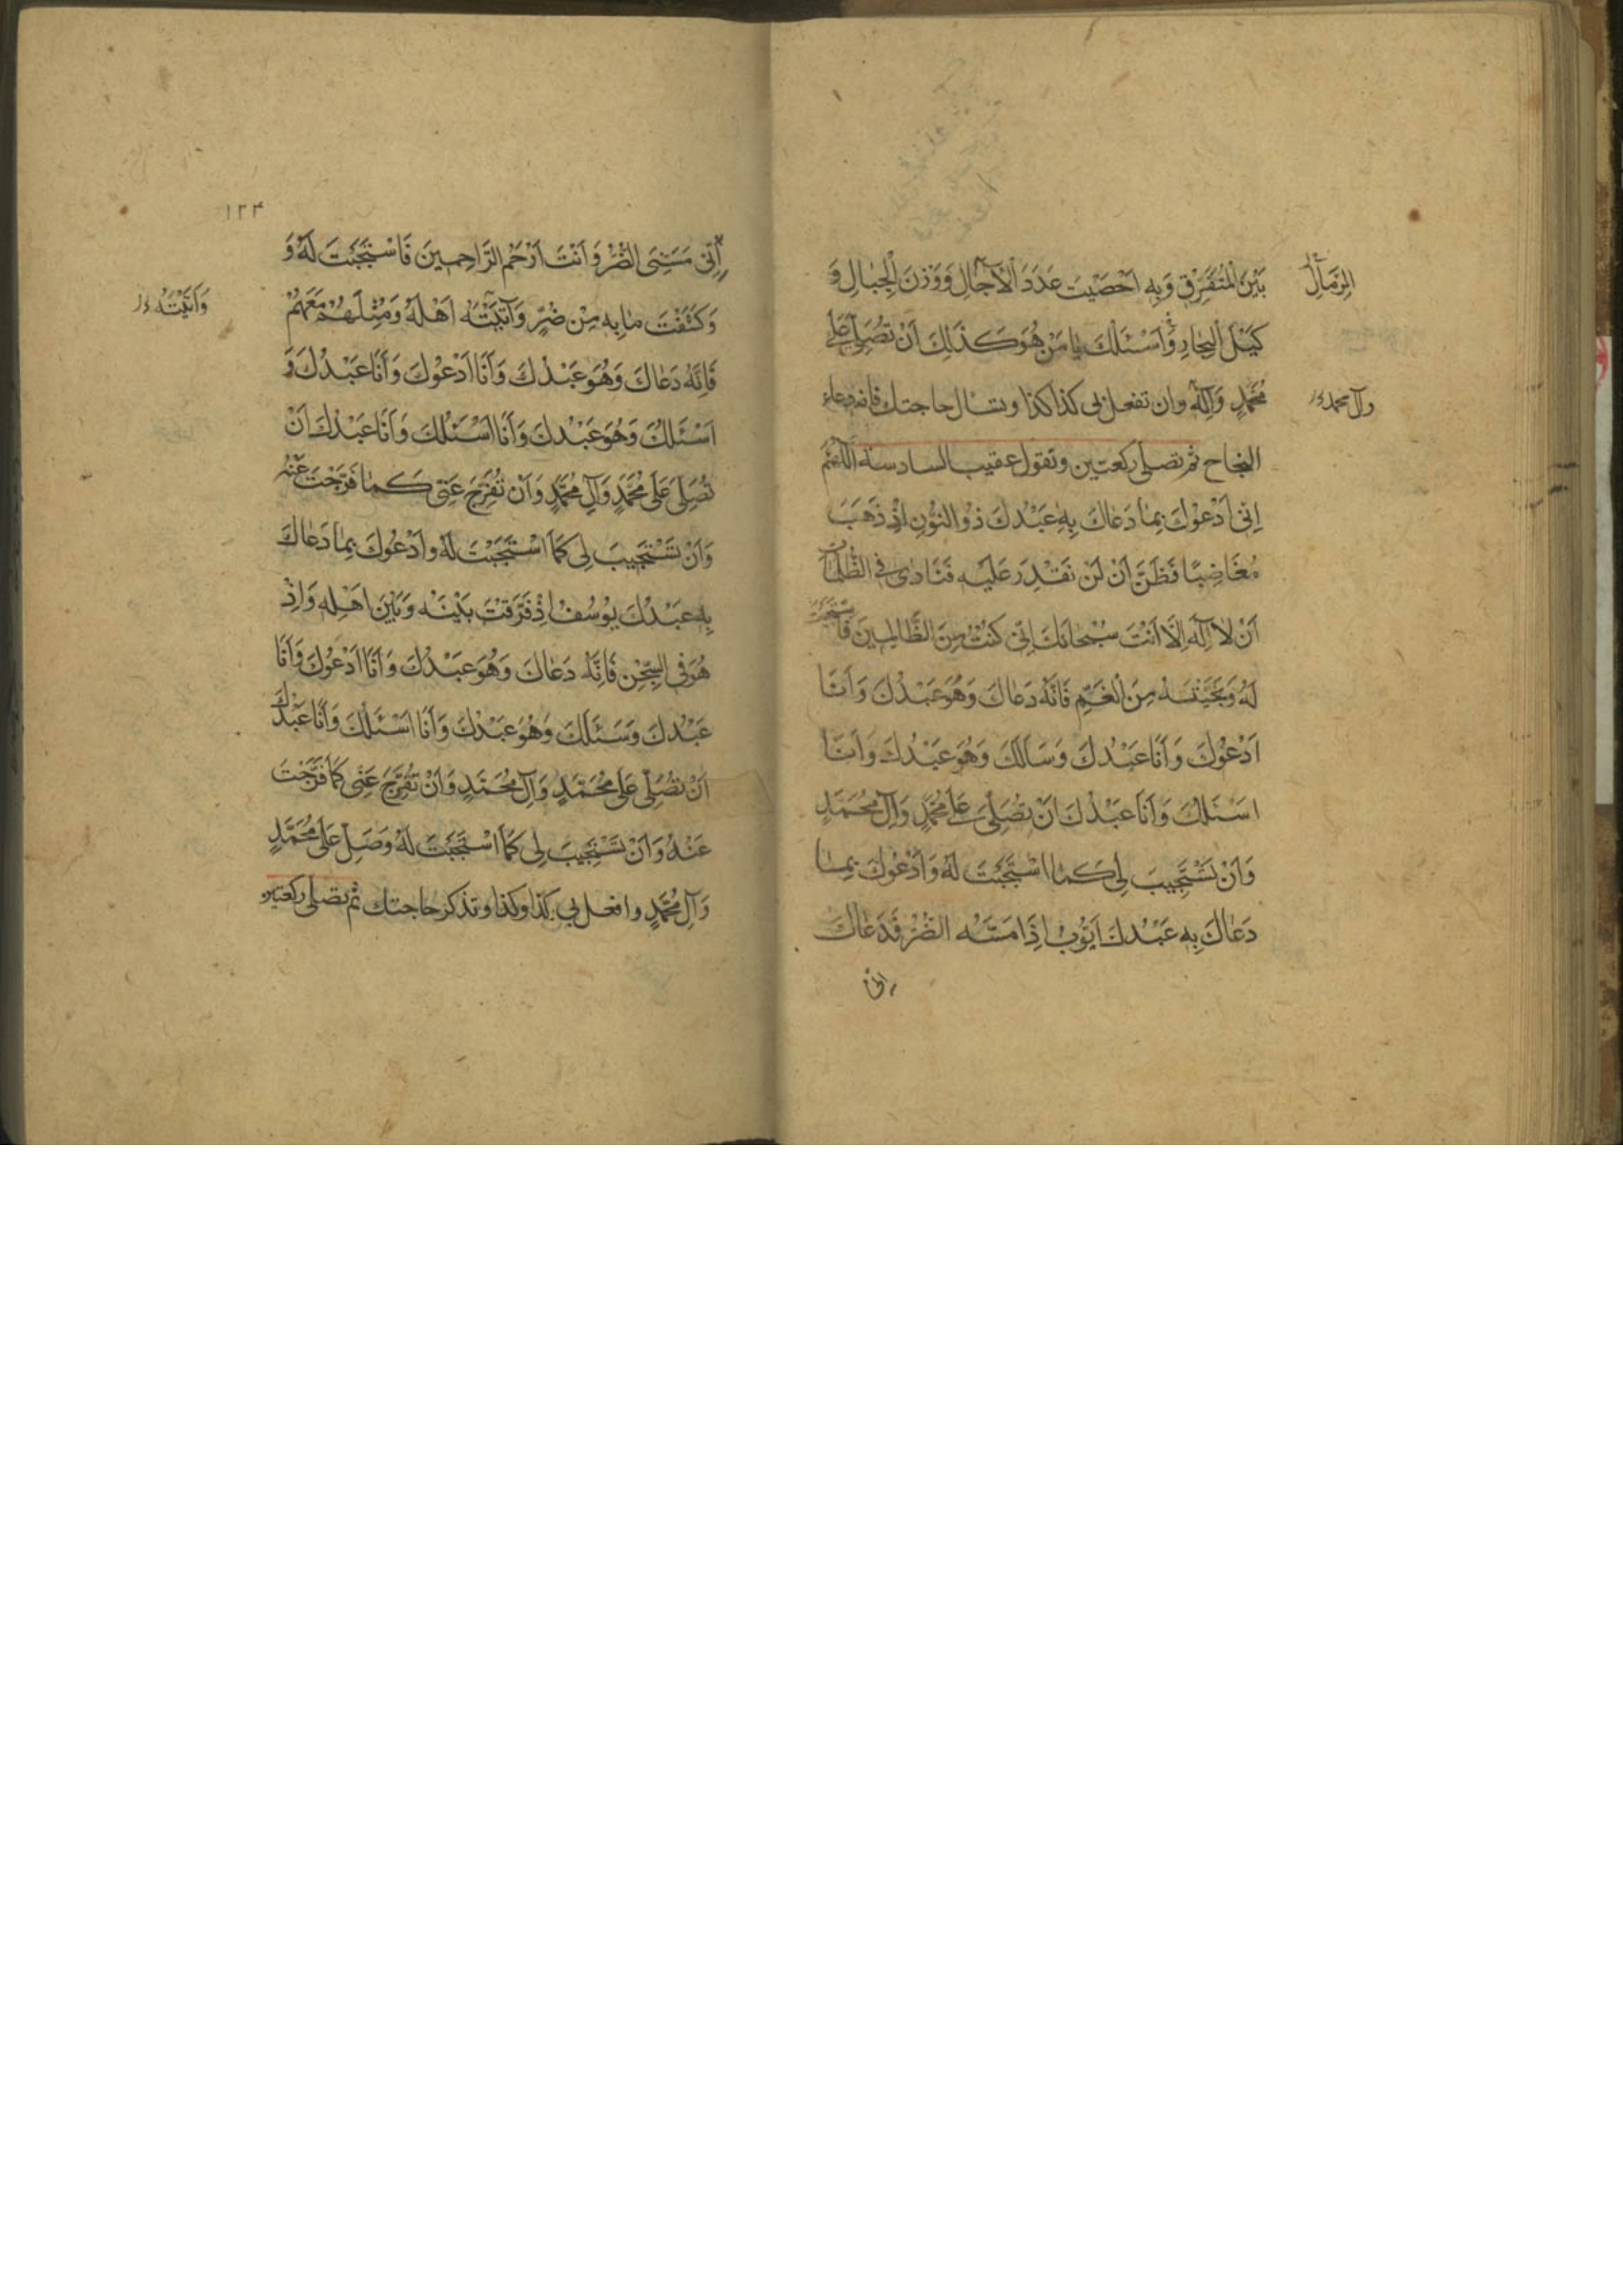 بَيْنَ الْمُتَفَرِّقِ وَبِهِ اَحْصَيْتَ عَدَدَ الْآجَالِ وَوَزْنَ الْجِبَالِ وَ
الرِّمَالِ
كَيْلَ الْبِحَارِ وَاَسْئَلُكَ يَا مَنْ هُوَ كَذٰلِكَ اَنْ تُصَلِّيَ عَلٰى
مُحَمَّدٍ وَآلِهِ وان تفعل بی کذا کذا وتسال حاجتك فانه دعاء
وآل محمد
النجاح ثم تصلی رکعتین وتقول عقیب السادسة اَللّٰهُمَّ
اِنّٖى اَدْعُوْكَ بِمٰا دَعٰاكَ بِهٖ عَبْدُكَ ذُو النُّوْنِ اِذْ ذَهَبَ
مُغَاضِبًا فَظَنَّ اَنْ لَنْ نَقْدِرَ عَلَيْهِ فَنَادٰى فِى الظُّلُمٰاتِ
اَنْ لاٰ اِلٰهَ اِلَّا اَنْتَ سُبْحٰانَكَ اِنّٖى كُنْتُ مِنَ الظَّالِمِينَ فَاسْتَجَبْتَ
لَهُ وَنَجَّيْتَهُ مِنَ الْغَمِّ فَاِنَّهُ دَعٰاكَ وَهُوَ عَبْدُكَ وَاَنَا
اَدْعُوْكَ وَاَنَا عَبْدُكَ وَسَاَلَكَ وَهُوَ عَبْدُكَ وَاَنَا
اَسْئَلُكَ وَاَنَا عَبْدُكَ اَنْ تُصَلِّيَ عَلٰى مُحَمَّدٍ وَآلِ مُحَمَّدٍ
وَاَنْ تَسْتَجِيبَ لِى كَمٰا اسْتَجَبْتَ لَهُ وَاَدْعُوْكَ بِمٰا
دَعٰاكَ بِهٖ عَبْدُكَ اَيُّوْبُ اِذَا مَسَّهُ الضُّرُّ فَدَعٰاكَ
انی
۱۲۴
اِنّٖى مَسَّنِىَ الضُّرُّ وَاَنْتَ اَرْحَمُ الرَّاحِمِينَ فَاسْتَجَبْتَ لَهُ وَ
وَكَشَفْتَ مٰا بِهٖ مِنْ ضُرٍّ وَآتَيْتَهُ اَهْلَهُ وَمِثْلَهُمْ مَعَهُمْ
وَآتَيْتَهُ
فَاِنَّهُ دَعٰاكَ وَهُوَ عَبْدُكَ وَاَنَا اَدْعُوْكَ وَاَنَا عَبْدُكَ وَ
اَسْئَلُكَ وَهُوَ عَبْدُكَ وَاَنَا اَسْئَلُكَ وَاَنَا عَبْدُكَ اَنْ
تُصَلِّيَ عَلٰى مُحَمَّدٍ وَآلِ مُحَمَّدٍ وَاَنْ تُفَرِّجَ عَنّٖى كَمٰا فَرَّجْتَ عَنْهُ
وَاَنْ تَسْتَجِيبَ لِى كَمَا اسْتَجَبْتَ لَهُ وَاَدْعُوْكَ بِمٰا دَعٰاكَ
بِهٖ عَبْدُكَ يُوْسُفُ اِذْ فَرَّقْتَ بَيْنَهُ وَبَيْنَ اَهْلِهٖ وَاِذْ
هُوَ فِى السِّجْنِ فَاِنَّهُ دَعٰاكَ وَهُوَ عَبْدُكَ وَاَنَا اَدْعُوْكَ وَاَنَا
عَبْدُكَ وَسَئَلَكَ وَهُوَ عَبْدُكَ وَاَنَا اَسْئَلُكَ وَاَنَا عَبْدُكَ
اَنْ تُصَلِّيَ عَلٰى مُحَمَّدٍ وَآلِ مُحَمَّدٍ وَاَنْ تُفَرِّجَ عَنّٖى كَمَا فَرَّجْتَ
عَنْهُ وَاَنْ تَسْتَجِيبَ لِى كَمَا اسْتَجَبْتَ لَهُ وَصَلِّ عَلٰى مُحَمَّدٍ
وَآلِ مُحَمَّدٍ وافعل بی کذا وکذا وتذکر حاجتك ثم تصلی رکعتین